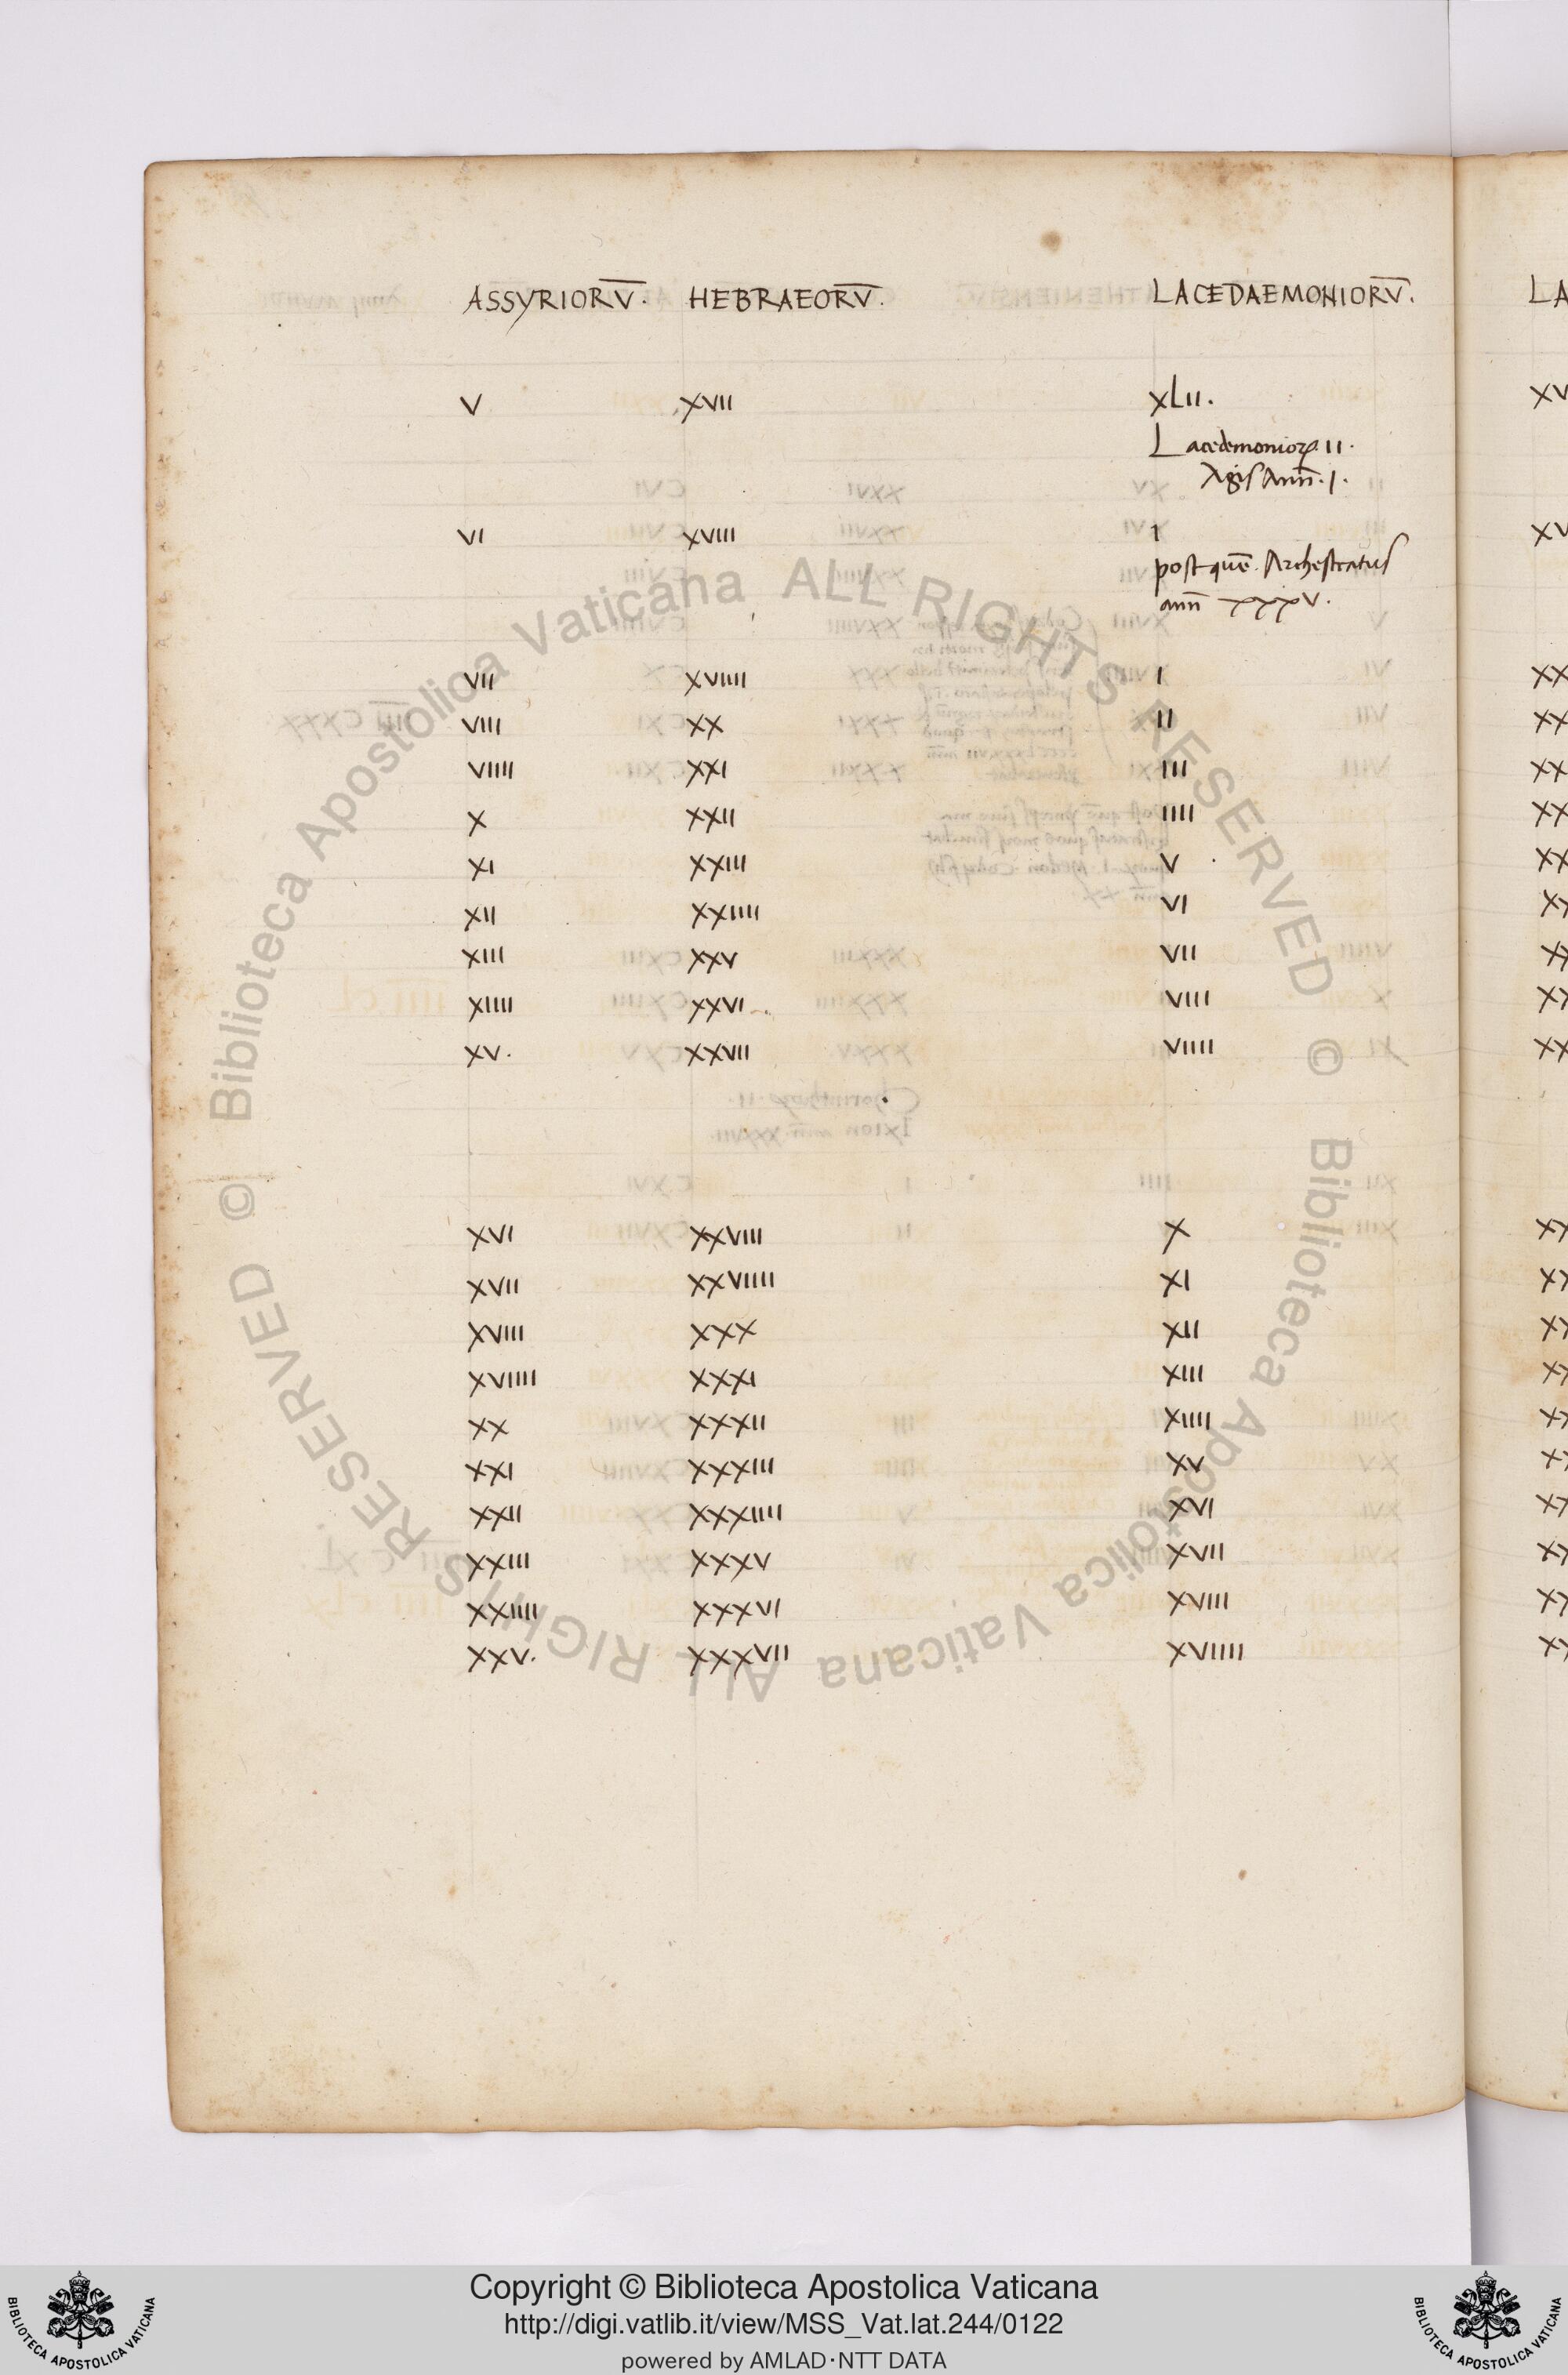 ASSYRIORV̅. HEBRAEORV̅. LACEDAEMONIORV̅. LA
V XVII XLII. XV
Lacedemonioꝝ II.
Agis Ann̅. I.
VI XVIII I XV
post quē. Archestratus
ann̅ XXXV.
VII XVIIII I XX
VIII XX II XX
VIIII XXI III XX
X XXII IIII XX
XI XXIII V XX
XII XXIIII VI XX
XIII XXV VII XX
XIIII XXVI VIII XX
XV. XXVII VIIII XX
XVI XXVIII X XX
XVII XXVIIII XI XX
XVIII XXX XII XX
XVIIII XXXI XIII XX
XX XXXII XIIII XX
XXI XXXIII XV XX
XXII XXXIIII XVI XX
XXIII XXXV XVII XX
XXIIII XXXVI XVIII XX
XXV. XXXVII XVIIII XX
© Biblioteca Apostolica Vaticana ALL RIGHTS RESERVED © Biblioteca Apostolica Vaticana ALL RIGHTS RESERVED
BIBLIOTECA APOSTOLICA VATICANA
Copyright © Biblioteca Apostolica Vaticana
http://digi.vatlib.it/view/MSS_Vat.lat.244/0122
powered by AMLAD·NTT DATA
BIBLIOTECA APOSTOLICA VATICANA